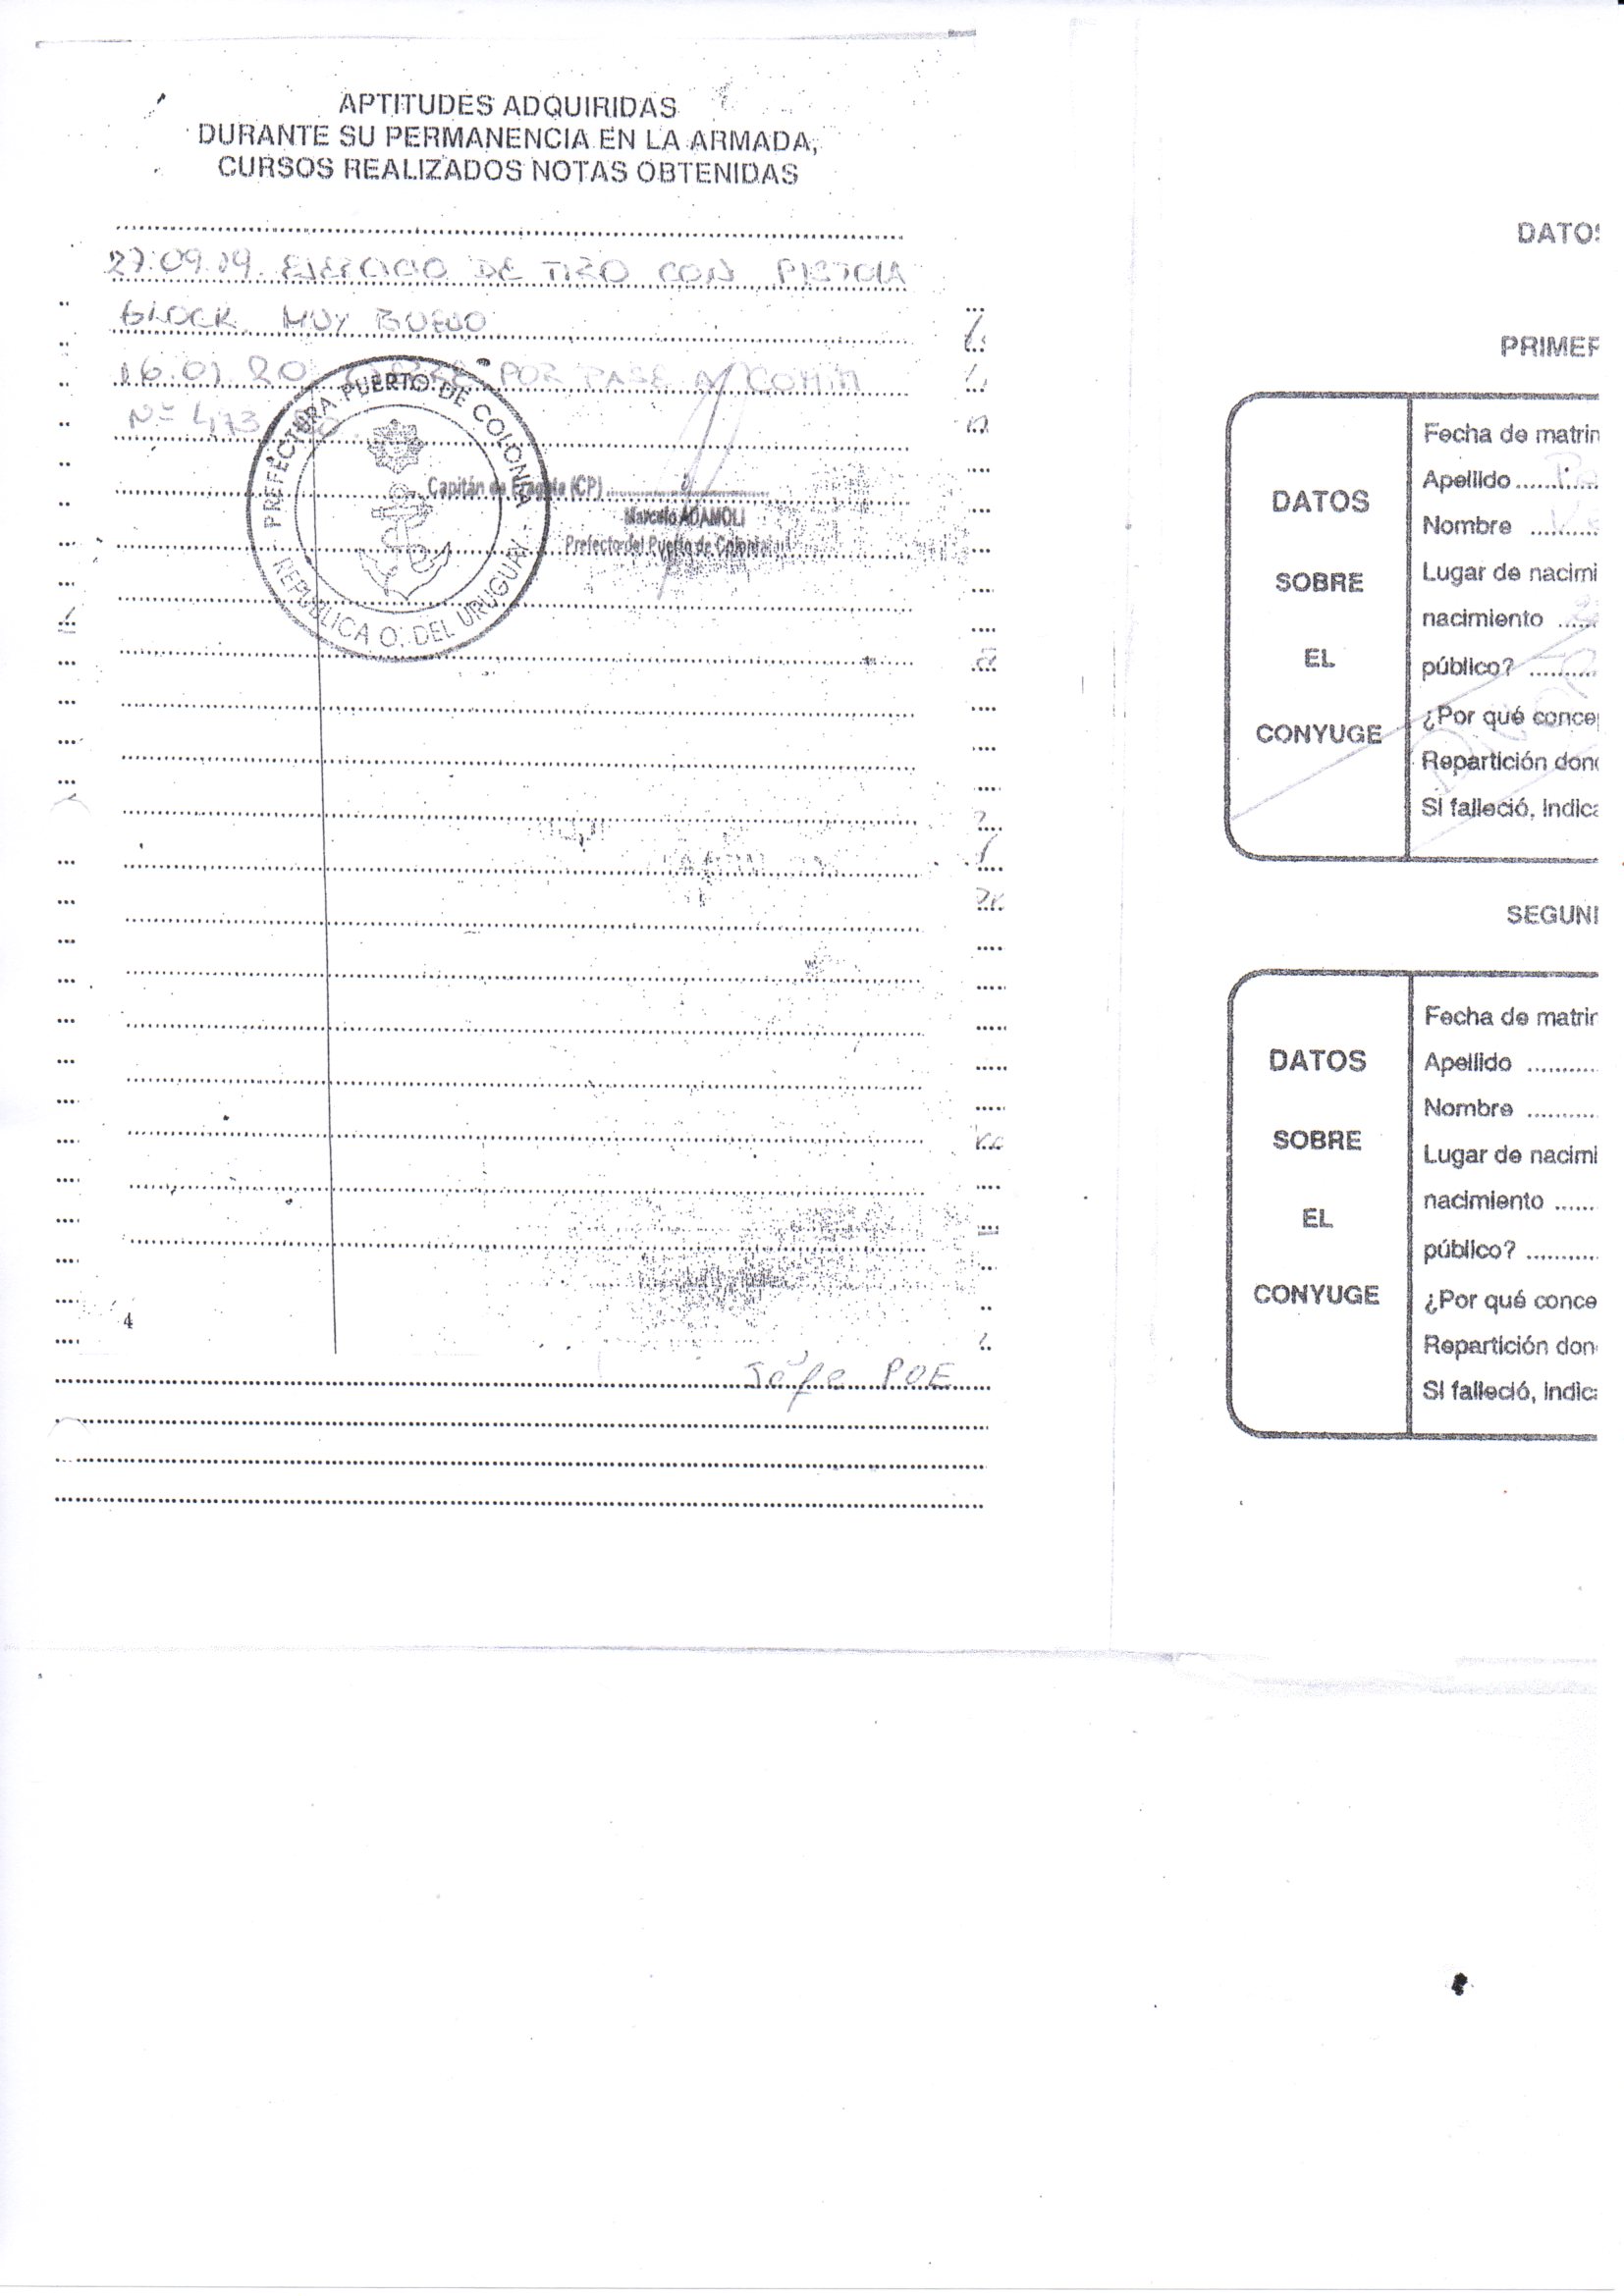 APTITUDES ADQUIRIDAS
DURANTE SU PERMANENCIA EN LA ARMADA,
CURSOS REALIZADOS NOTAS OBTENIDAS
27.09.19 EJERCICIO DE TIRO CON PISTOLA
GLOCK MUY BUENO
16.01.20 POR PASE A COMIM
Nº
PREFECTURA PUERTO DE COLONIA
REPUBLICA O. DEL URUGUAY
Capitán de Fragata (CP)
Marcelo ADAMOLI
Prefecto del Puerto de Colonia
4
Jefe POE
DATOS
PRIMER
DATOS
SOBRE
EL
CONYUGE
Fecha de matrim
Apellido
Nombre
Lugar de nacimi
nacimiento
público?
¿Por qué concep
Repartición dond
Si falleció, indica
SEGUND
DATOS
SOBRE
EL
CONYUGE
Fecha de matrim
Apellido
Nombre
Lugar de nacimi
nacimiento
público?
¿Por qué conce
Repartición don
Si falleció, indica